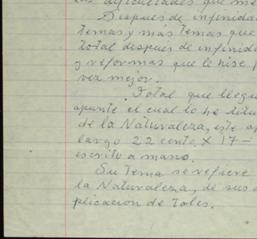 las dificultades que me
Despues de infinida
temas y mas temas que
total despues de infinid
y reformas que le hise
vez mejor.
Total que llegu
apunte el cual lo he titu
de la Naturaleza, este a
largo 22 cents, X 17 –
escrito a mano.
Su tema se refiere
la Naturaleza, de sus
plicacion de tales.